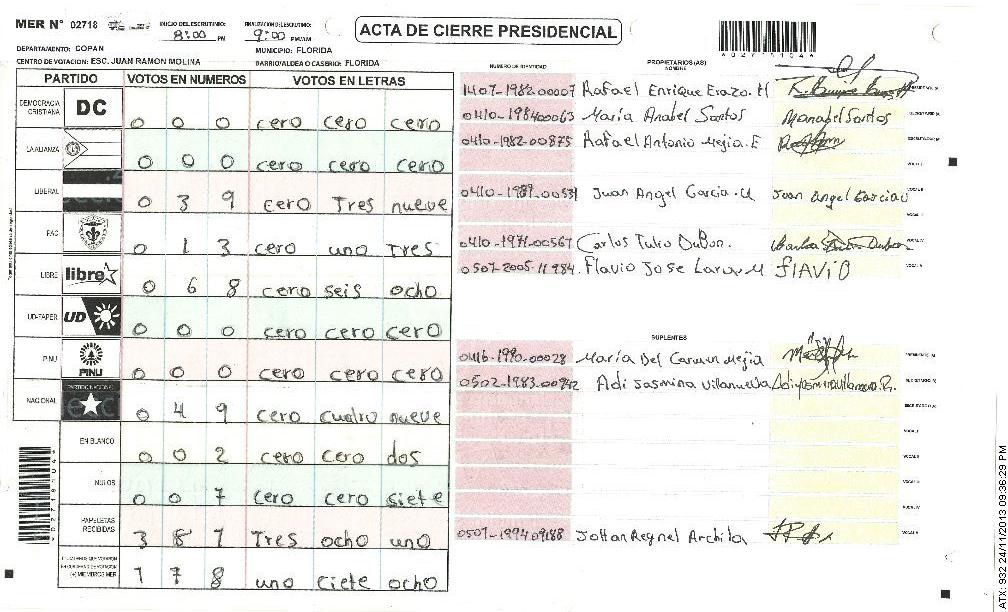 MER N° 02718
INICIO DEL ESCRUTINIO: 8:00 PM
FINALIZACION DEL ESCRUTINIO: 9:00 PM/AM
ACTA DE CIERRE PRESIDENCIAL
DEPARTAMENTO: COPAN
MUNICIPIO: FLORIDA
CENTRO DE VOTACION: ESC. JUAN RAMON MOLINA
BARRIO/ALDEA O CASERIO: FLORIDA
PARTIDO VOTOS EN NUMEROS VOTOS EN LETRAS
DEMOCRACIA CRISTIANA DC 0 0 0 cero cero cero
LA ALIANZA 0 0 0 cero cero cero
LIBERAL 0 3 9 cero Tres nueve
PAC 0 1 3 cero uno Tres
LIBRE libre 0 6 8 cero seis ocho
UD-FAPER UD 0 0 0 cero cero cero
PINU PINU 0 0 0 cero cero cero
NACIONAL PARTIDO NACIONAL 0 4 9 cero cuatro nueve
EN BLANCO 0 0 2 cero cero dos
NULOS 0 0 7 cero cero siete
PAPELETAS RECIBIDAS 3 8 1 Tres ocho uno
(+) MIEMBROS MER 1 7 8 uno ciete ocho
NUMERO DE IDENTIDAD PROPIETARIOS (AS) NOMBRE
1407-1982-00007 Rafael Enrique Erazo. H
0410-198400063 María Anabel Santos Manabel Santos
0410-1982-00875 Rafael Antonio Mejia. E
0410-1989-00531 Juan Angel Garcia. Juan Angel Garcia
0410-1971-00567 Carlos Tulio DuBon.
0507-2005-11984 Flavio Jose FlAViO
SUPLENTES
0416-1990-00028 María Del Carmen Mejia
0502-1983-00942 Adi Jasmina Villanueva
0507-1994-09188 Johan Reynel
ATX: 932 24/11/2013 09:36:29 PM